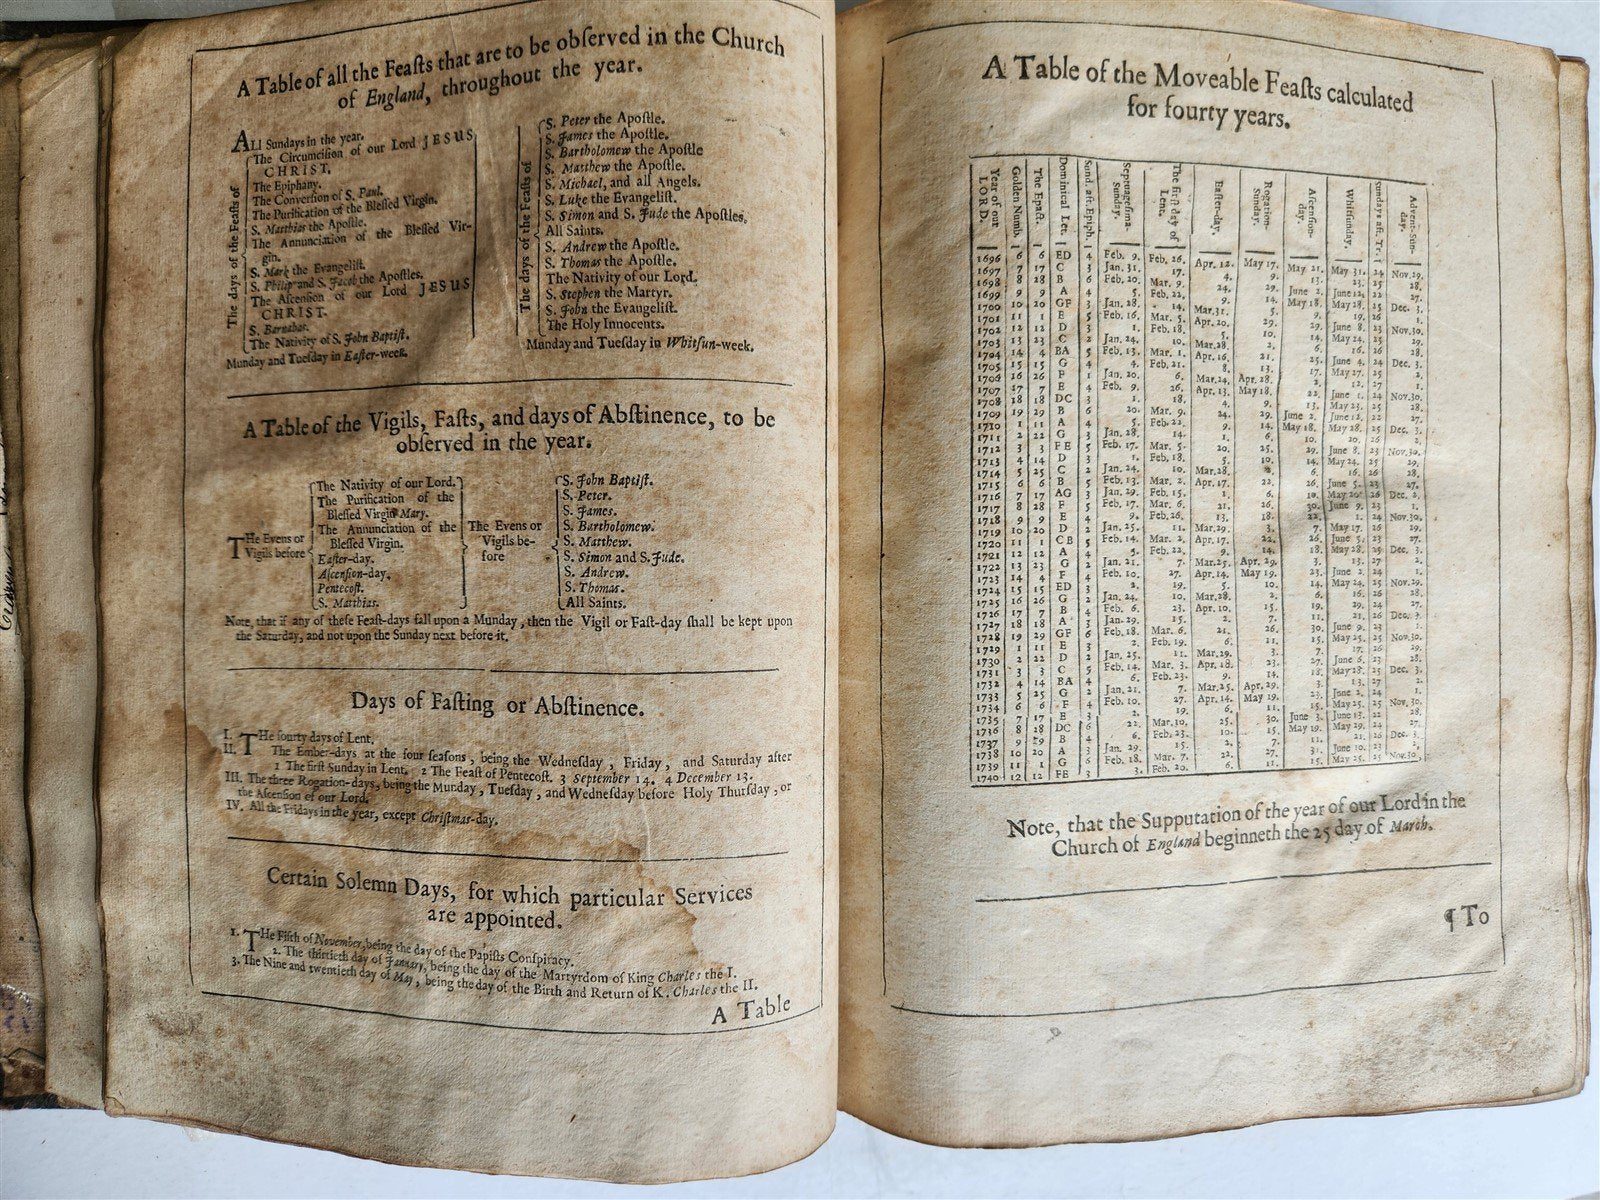 A Table of all the Feaſts that are to be obſerved in the Church
of England, throughout the year.
ALl Sundays in the year.
The days of the Feaſts of
The Circumciſion of our Lord JESUS
CHRIST.
The Epiphany.
The Converſion of S. Paul.
The Purification of the Bleſſed Virgin.
S. Matthias the Apoſtle.
The Annunciation of the Bleſſed Vir-
gin.
S. Mark the Evangeliſt.
S. Philip and S. Jacob the Apoſtles.
The Aſcenſion of our Lord JESUS
CHRIST.
S. Barnabas.
The Nativity of S. John Baptiſt.
Munday and Tueſday in Eaſter-week.
The days of the Feaſts of
S. Peter the Apoſtle.
S. James the Apoſtle.
S. Bartholomew the Apoſtle
S. Matthew the Apoſtle.
S. Michael, and all Angels.
S. Luke the Evangeliſt.
S. Simon and S. Jude the Apoſtles.
All Saints.
S. Andrew the Apoſtle.
S. Thomas the Apoſtle.
The Nativity of our Lord.
S. Stephen the Martyr.
S. John the Evangeliſt.
The Holy Innocents.
Munday and Tueſday in Whitſun-week.
A Table of the Vigils, Faſts, and days of Abſtinence, to be
obſerved in the year.
THe Evens or
Vigils before
The Nativity of our Lord.
The Purification of the
Bleſſed Virgin Mary.
The Annunciation of the
Bleſſed Virgin.
Eaſter-day.
Aſcenſion-day.
Pentecoſt.
S. Matthias.
The Evens or
Vigils be-
fore
S. John Baptiſt.
S. Peter.
S. James.
S. Bartholomew.
S. Matthew.
S. Simon and S. Jude.
S. Andrew.
S. Thomas.
All Saints.
Note, that if any of theſe Feaſt-days fall upon a Munday, then the Vigil or Faſt-day ſhall be kept upon
the Saturday, and not upon the Sunday next before it.
Days of Faſting or Abſtinence.
I. THe fourty days of Lent.
II. The Ember-days at the four ſeaſons, being the Wedneſday, Friday, and Saturday after
1 The firſt Sunday in Lent. 2 The Feaſt of Pentecoſt. 3 September 14. 4 December 13.
III. The three Rogation-days, being the Munday, Tueſday, and Wedneſday before Holy Thurſday, or
the Aſcenſion of our Lord.
IV. All the Fridays in the year, except Chriſtmas-day.
Certain Solemn Days, for which particular Services
are appointed.
1. THe Fifth of November, being the day of the Papiſts Conſpiracy.
2. The thirtieth day of January, being the day of the Martyrdom of King Charles the I.
3. The Nine and twentieth day of May, being the day of the Birth and Return of K. Charles the II.
A Table
A Table of the Moveable Feaſts calculated
for fourty years.
Year of our LORD. Golden Numb. The Epact. Dominical Let. Sund. aft. Epiph. Septuageſima-Sunday. The firſt day of Lent. Eaſter-day. Rogation-Sunday. Aſcenſion-day. Whitſunday. Sundays aft. Tr. Advent-Sunday.
1696 6 6 ED 4 Feb. 9. Feb. 26. Apr. 12. May 17. May 21. May 31. 24 Nov. 29.
1697 7 17 C 3 Jan. 31. 17. 4. 9. 13. 23. 25 28.
1698 8 28 B 6 Feb. 20. Mar. 9. 24. 29. June 2. June 12 22 27.
1699 9 9 A 4 5. Feb. 22. 9. 14. May 18. May 28. 25 Dec. 3.
1700 10 20 GF 3 Jan. 28. 14. Mar. 31. 5. 9. 19. 26 1.
1701 11 1 E 5 Feb. 16. Mar. 5. Apr. 20. 29. June 8. 23 Nov. 30.
1702 12 12 D 3 1. Feb. 18. 5. 10. 14. May 24. 25 29.
1703 13 23 C 2 Jan. 24. 10. Mar. 28. 2. 6. 16. 26 28.
1704 14 4 BA 5 Feb. 13. Mar. 1. Apr. 16. 21. 25. June 4. 24 Dec. 3.
1705 15 15 G 4 4. Feb. 21. 8. 13. 17. May 27. 25 2.
1706 16 26 F 1 Jan. 20. 6. Mar. 24. Apr. 28. 2. 12. 27 1.
1707 17 7 E 4 Feb. 9. 26. Apr. 13. May 18. 22. June 1. 24 Nov. 30.
1708 18 18 DC 3 1. 18. 4. 9. 13. May 23. 25 28.
1709 19 29 B 6 20. Mar. 9. 24. 29. June 2. June 12. 22 27.
1710 1 11 A 4 5. Feb. 22. 9. 14. May 18. May 28. 25 Dec. 3.
1711 2 22 G 3 Jan. 28. 14. 1. 6. 10. 20. 26 2.
1712 3 3 FE 5 Feb. 17. Mar. 5. 20. 25. 29. June 8. 23 Nov. 30.
1713 4 14 D 3 1. Feb. 18. 5. 10. 14. May 24. 25 29.
1714 5 25 C 2 Jan. 24. 10. Mar. 28. 2. 6. 16. 26 28.
1715 6 6 B 5 Feb. 13. Mar. 2. Apr. 17. 22. 26. June 5. 23 27.
1716 7 17 AG 3 Jan. 29. Feb. 15. 1. 6. 10. May 20. 26 Dec. 2.
1717 8 28 F 5 Feb. 17. Mar. 6. 21. 26. 30. June 9. 23 1.
1718 9 9 E 4 9. Feb. 26. 13. 18. 22. 1. 24 Nov. 30.
1719 10 20 D 2 Jan. 25. 11. Mar. 29. 3. 7. May 17. 26 29.
1720 11 1 CB 5 Feb. 14. Mar. 2. Apr. 17. 22. 26. June 5. 23 27.
1721 12 12 A 4 5. Feb. 22. 9. 14. 18. May 28. 25 Dec. 3.
1722 13 23 G 2 Jan. 21. 7. Mar. 25. Apr. 29. 3. 13. 27 2.
1723 14 4 F 4 Feb. 10. 27. Apr. 14. May 19. 23. June 2. 24 1.
1724 15 15 ED 3 2. 19. 5. 10. 14. May 24. 25 Nov. 29.
1725 16 26 G 2 Jan. 24. 10. Mar. 28. 2. 6. 16. 26 28.
1726 17 7 B 4 Feb. 6. 23. Apr. 10. 15. 19. 29. 24 27.
1727 18 18 A 3 Jan. 29. 15. 2. 7. 11. 21. 26 Dec. 3.
1728 19 29 GF 6 Feb. 18. Mar. 6. 21. 26. 30. June 9. 23 1.
1729 1 11 E 3 2. Feb. 19. 6. 11. 15. May 25. 25 Nov. 30.
1730 2 22 D 2 Jan. 25. 11. Mar. 29. 3. 7. 17. 26 29.
1731 3 3 C 5 Feb. 14. Mar. 3. Apr. 18. 23. 27. June 6. 23 28.
1732 4 14 BA 4 6. Feb. 23. 9. 14. 18. May 28. 25 Dec. 3.
1733 5 25 G 2 Jan. 21. 7. Mar. 25. Apr. 29. 3. 13. 27 2.
1734 6 6 F 4 Feb. 10. 27. Apr. 14. May 19. 23. June 2. 24 1.
1735 7 17 E 3 2. 19. 6. 11. 15. May 25. 25 Nov. 30.
1736 8 28 DC 6 22. Mar. 10. 25. 30. June 3. June 13. 22 28.
1737 9 9 B 4 6. Feb. 23. 10. 15. May 19. May 29. 24 27.
1738 10 20 A 3 Jan. 29. 15. 2. 7. 11. 21. 26 Dec. 3.
1739 11 1 G 6 Feb. 18. Mar. 7. 22. 27. 31. June 10. 23 2.
1740 12 12 FE 3 3. Feb. 20. 6. 11. 15. May 25. 25 Nov. 30.
Note, that the Supputation of the year of our Lord in the
Church of England beginneth the 25 day of March.
¶ To